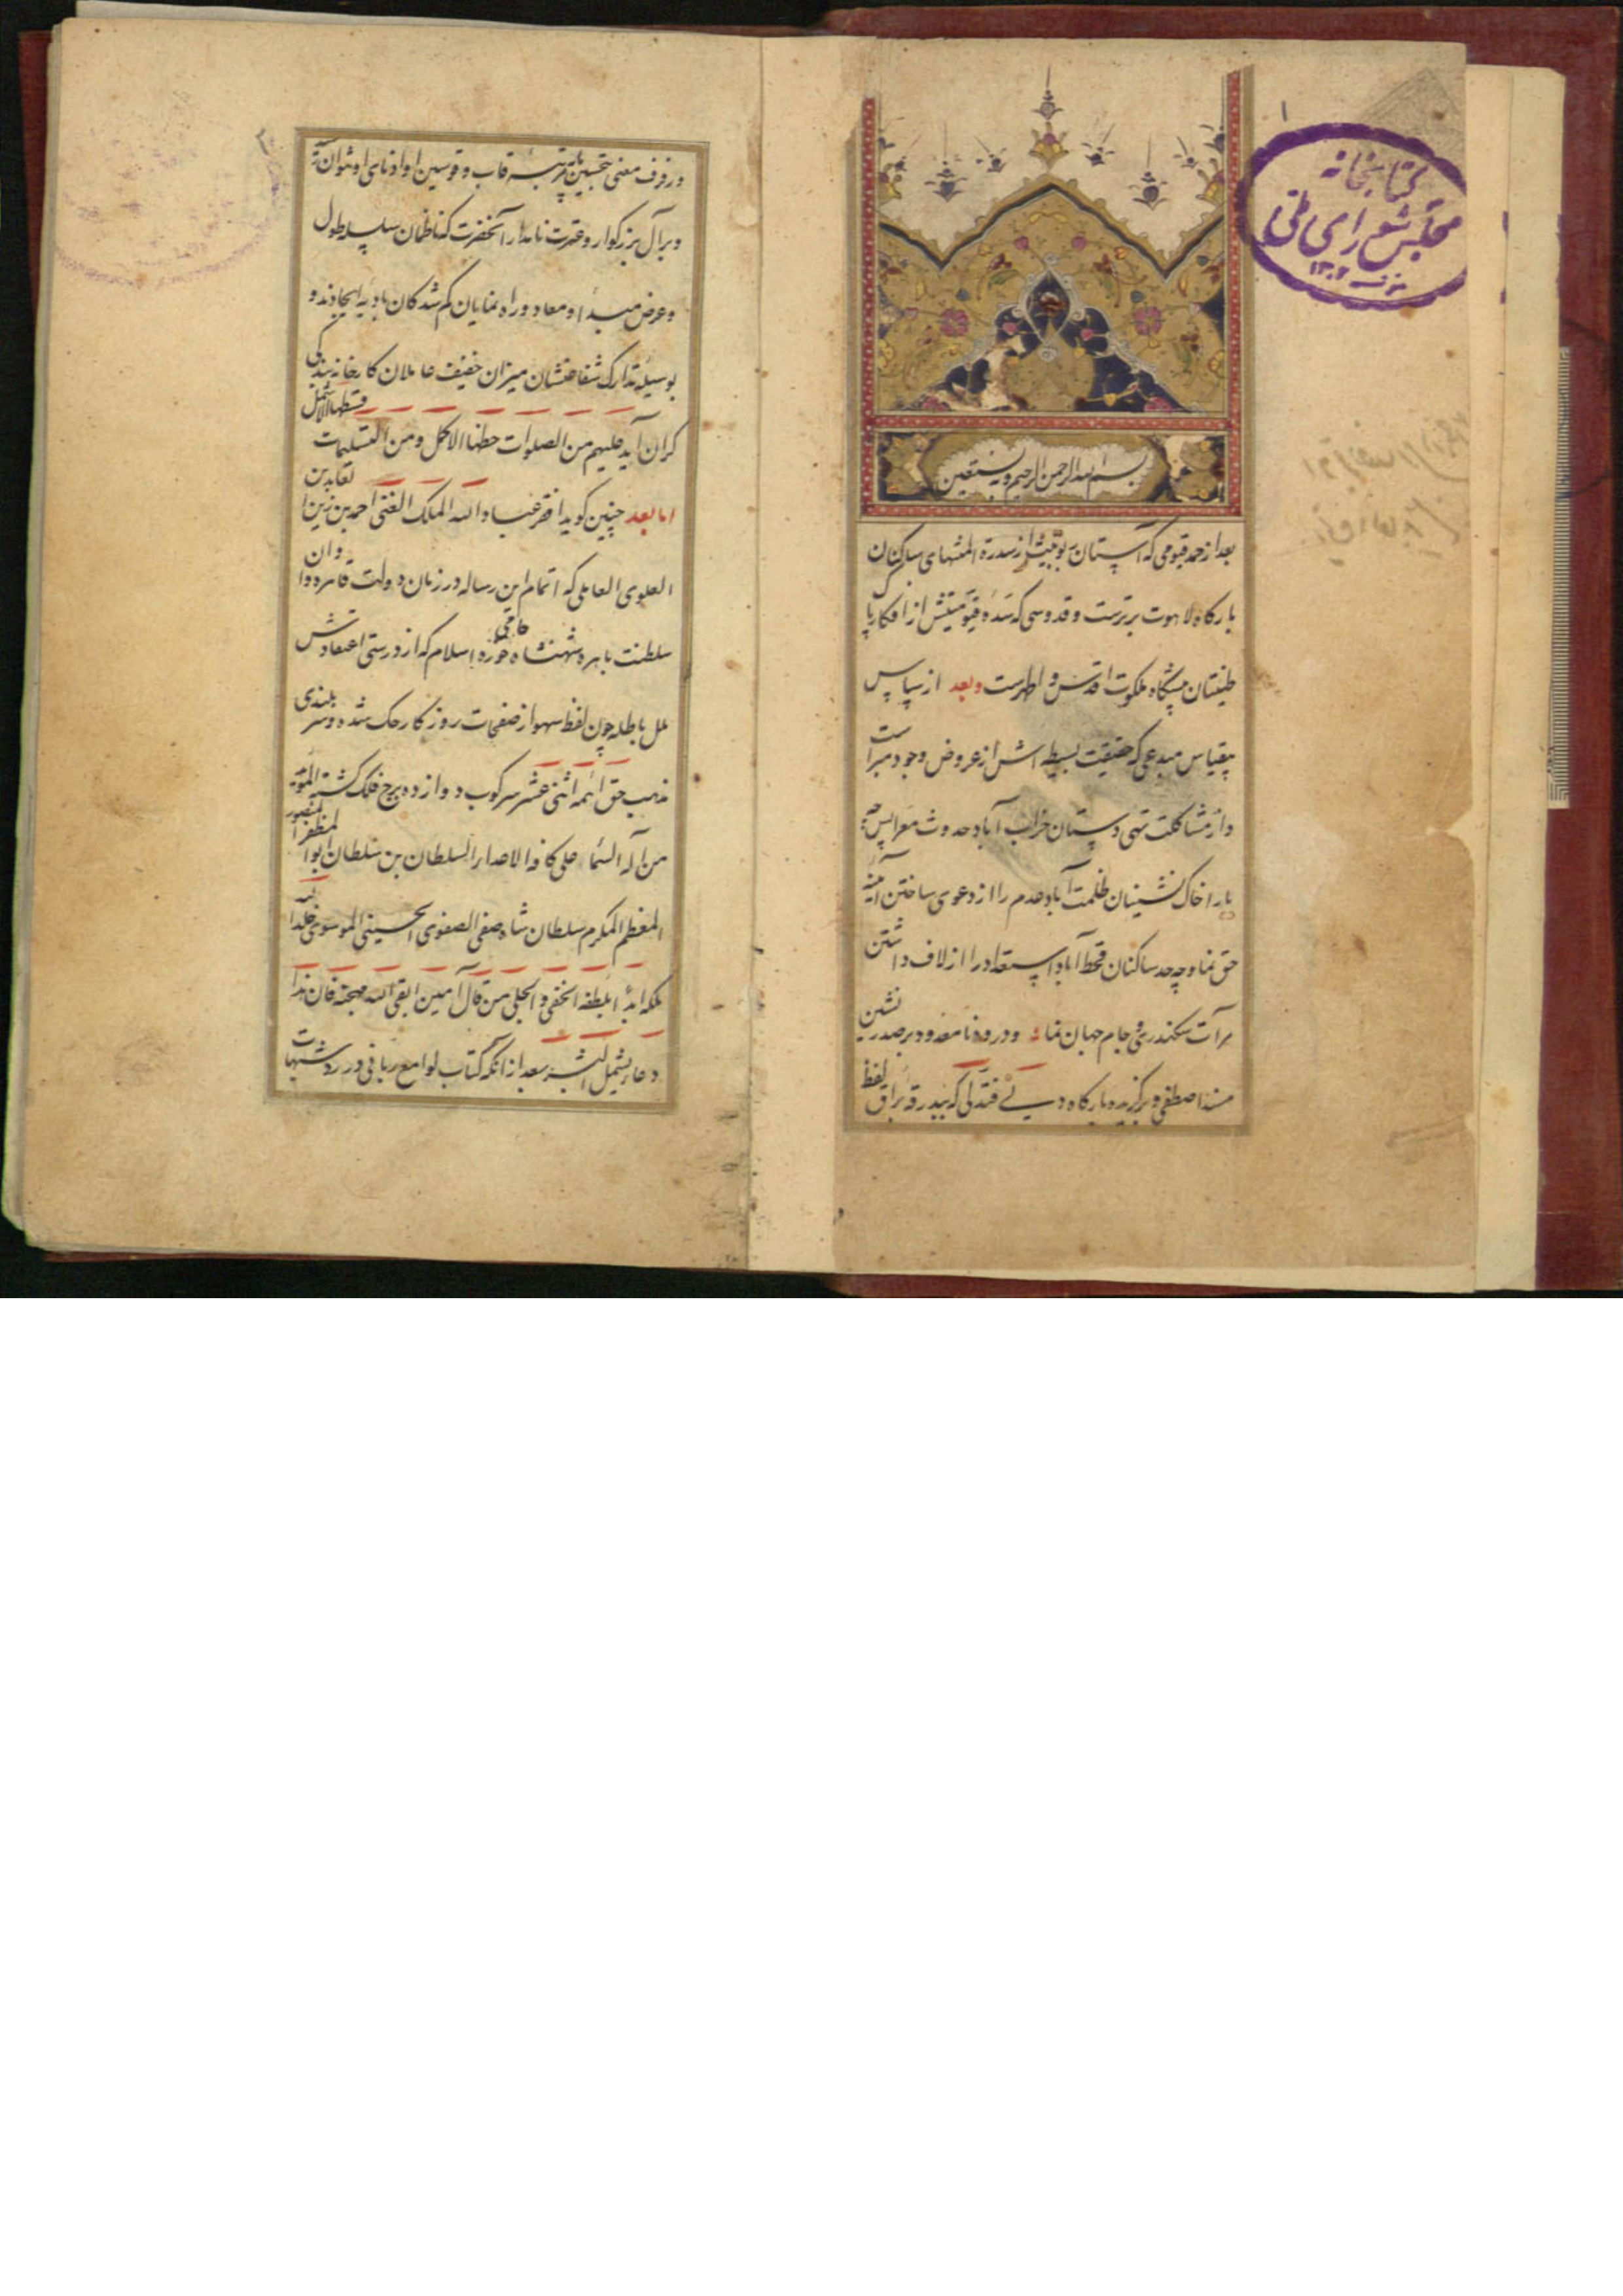 ۱
کتابخانه
مجلس شورای ملی
۱۳۰۲
بسم الله الرحمن الرحیم وبه نستعین
بعد از حمد قیومی که آستان ربوبیتش از سدرة المنتهای ساکنان
بارکاه لاهوت برترست و قدوسی که سده قیومیتش از افکار پاک
طینتان پیشکاه ملکوت اقدس و اطهرست و بعد از سپاس
بیقیاس مبدعی که حقیقت بسیطه اش از عروض وجود مبراست
و از مشاکلت تهی دستان خراب آباد حدوث معرا پس چه
یارا خاک نشینان ظلمت آباد عدم را از دعوی ساختن آینهٔ
حق نما و چه حد ساکنان قحط آباد استعداد را از لاف داشتن
مرآت سکندری و جام جهان نما و درود نامعدود بر صدر نشین
مسند اصطفی و برکزیده بارکاه دنی فتدلی که ببدرقه براق لفظ
و رفرف معنی بمرتبه قاب و قوسین او ادنای
و بر آل بزرکوار و عترت نامدار آنحضرت که ناظمان سلسله طول
و عرض مبداء و معاد و راه نمایان کم شدکان بادیه ایجادند و
بوسیله تدارک شفاعتشان میزان خفیف عاملان کارخانه بندکی
کران آید علیهم من الصلوات حظها الاکمل و من التسلیمات قسطها الاشمل
اما بعد چنین کوید افقر عباد الله الملک الغنی احمد بن زین العابدین
العلوی العاملی که اتمام این رساله در زمان دولت قاهره و اوان
سلطنت باهره شهنشاه حوزه اسلام که از درستی اعتقادش حامی
ملل باطله چون لفظ سهو از صفحات روزکار حک شده و سر بلندی
مذهب حق ائمه اثنی عشر سرکوب دوازده برج فلک کشته المؤید
من آله السماء علی کافة الاعداء السلطان بن سلطان ابوالمظفر المنصور
المعظم المکرم سلطان شاه صفی الصفوی الحسینی الموسوی خلد الله
ملکه ابداً بلطفه الخفی و الجلی من قال آمین ابقی الله مهجته فان هذا
دعاء یشمل البشر بعد از آنکه کتاب لوامع ربانی در رد شبهات